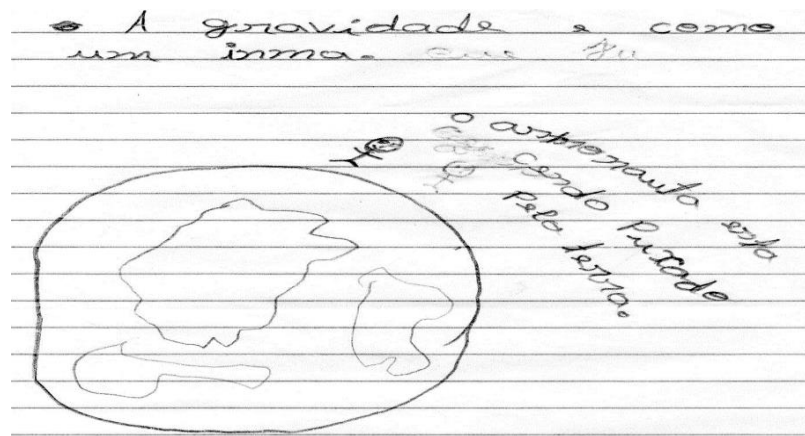 A gravidade e como
um inma. que fu
o astronauta esta
cendo Puxado
Pela terra.